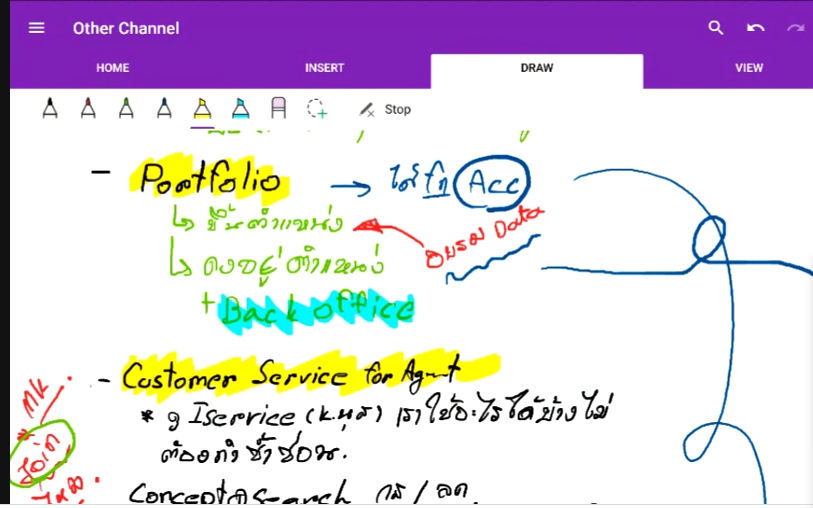 Other Channel
HOME INSERT DRAW VIEW
Stop
- Portfolio → ใส่ใน Acc
↳ ขึ้นตำแหน่ง
อบรม Data
↳ คงอยู่ตำแหน่ง
+ Back office
- Customer Service for Agent
* ดู Iservice (k.นุส) เราใช้อะไรได้บ้างไม่
ต้องทำซ้ำซ้อน.
MK
Join
Concept Search